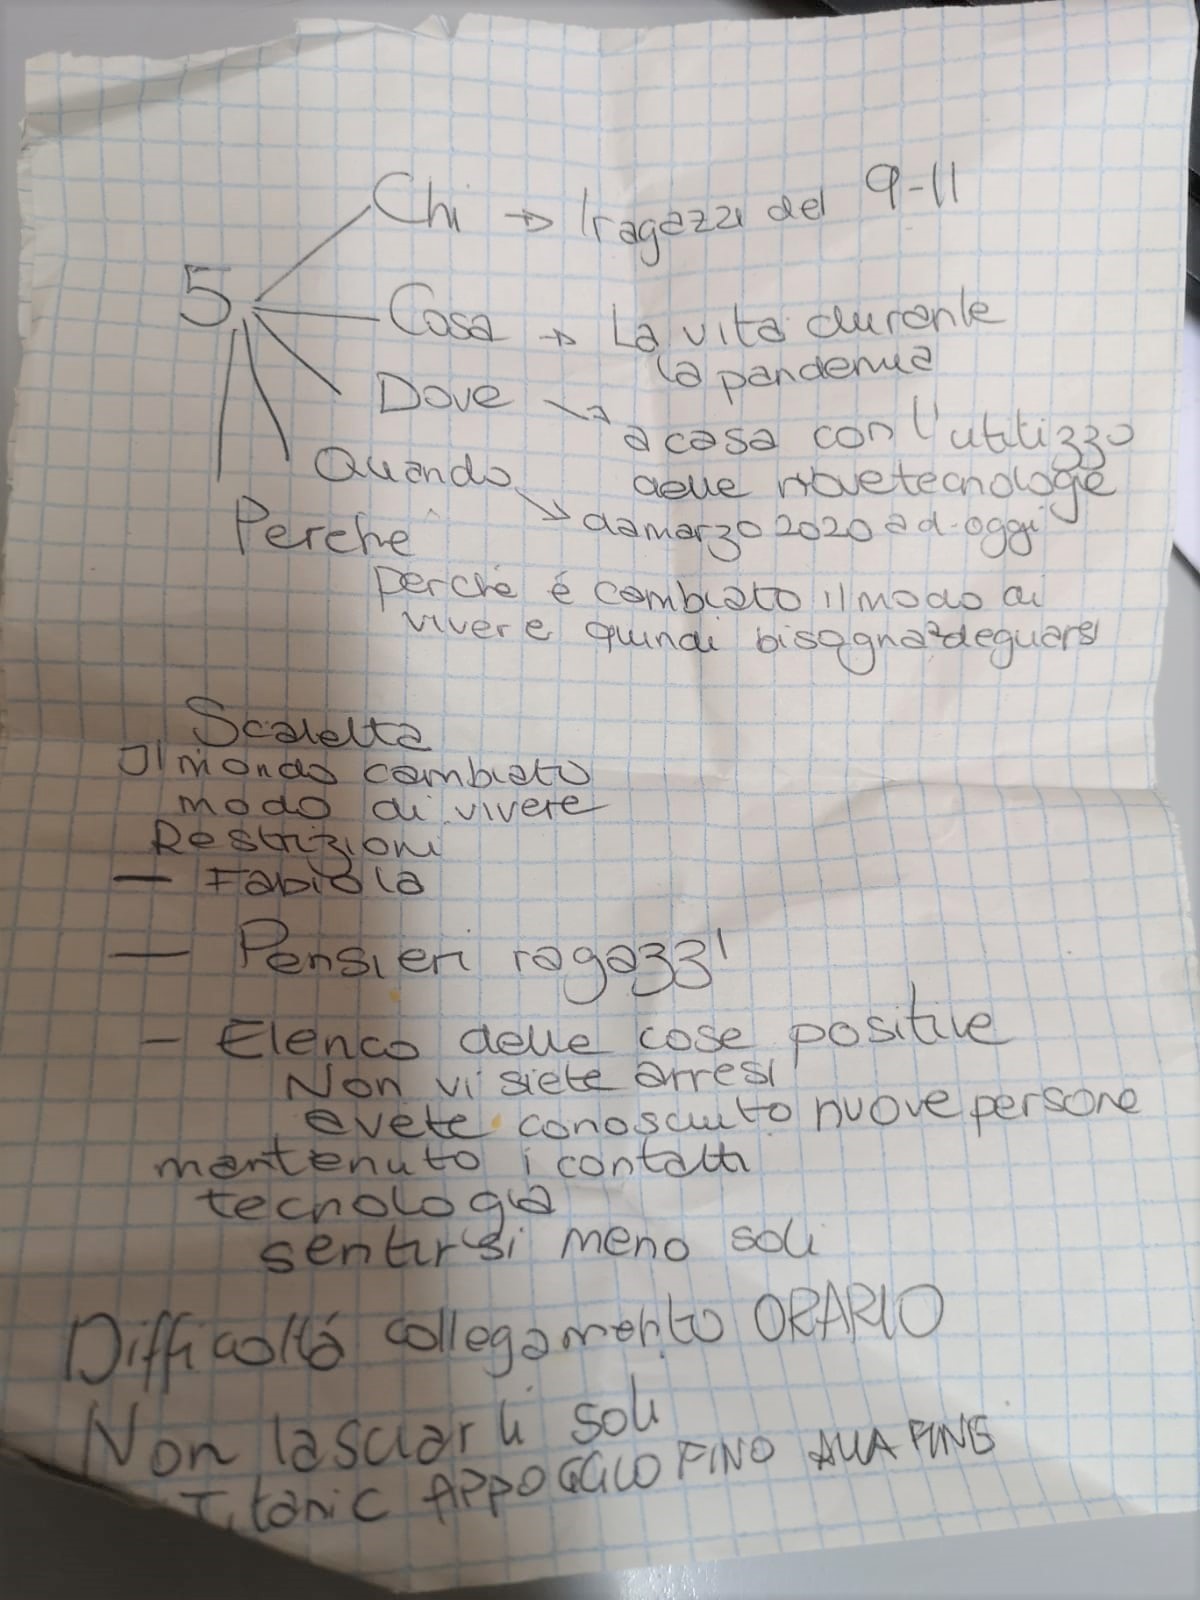 5
Chi → I ragazzi del 9-11
Cosa → La vita durante
la pandemia
Dove → a casa con l'utilizzo
delle nuove tecnologie
Quando → da marzo 2020 ad oggi
Perché
perché é cambiato il modo di
vivere e quindi bisogna adeguarsi
Scaletta
Il mondo cambiato
modo di vivere
Restrizioni
— Fabiola
— Pensieri ragazzi
- Elenco delle cose positive
Non vi siete arresi
avete conosciuto nuove persone
mantenuto i contatti
tecnologia
sentirsi meno soli
Difficoltá collegamento ORARIO
Non lasciarli soli
Titanic APPOGGIO FINO ALLA FINE